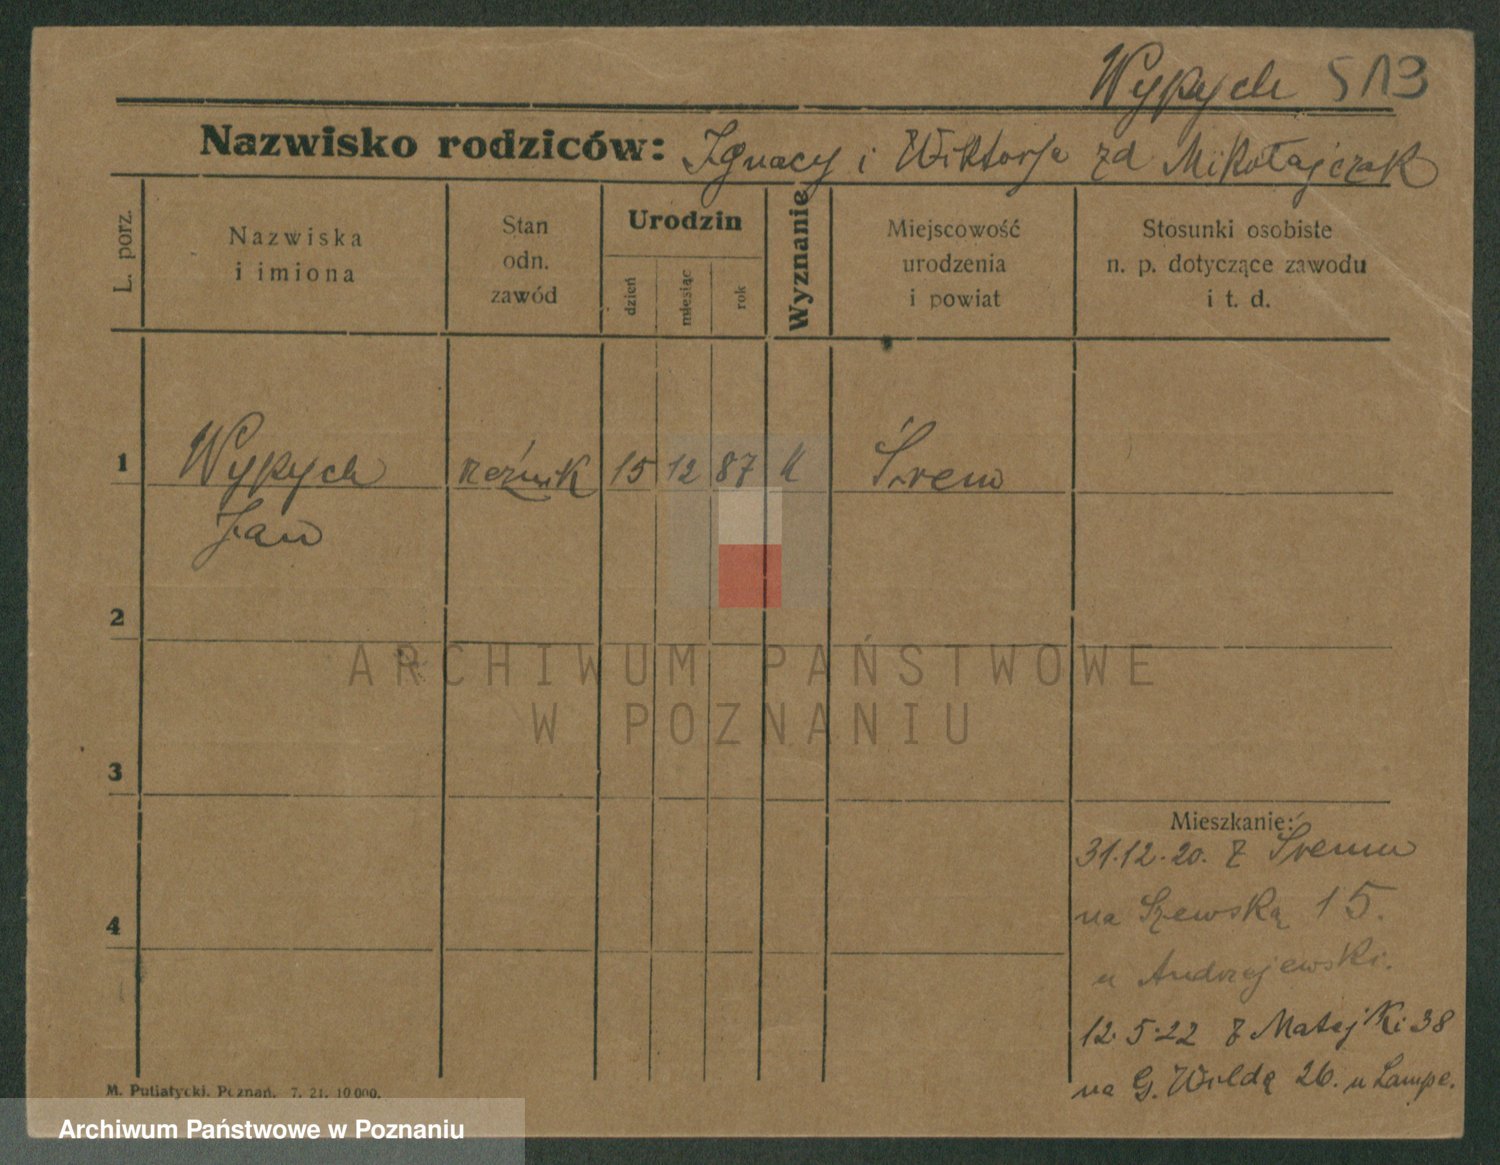 Wypych 513
Nazwisko rodziców: Ignacy i Wiktorja zd Mikołajczak
L. porz.
Nazwiska
i imiona
Stan
odn.
zawód
Urodzin
dzień
miesiąc
rok
Wyznanie
Miejscowość
urodzenia
i powiat
Stosunki osobiste
n. p. dotyczące zawodu
i t. d.
1 Wypych rzeźnik 15 12 87 k Śrem
Jan
2
ARCHIWUM PAŃSTWOWE
W POZNANIU
3
Mieszkanie:
31.12.20. z Śremu
na Szewską 15.
4
u Andrzejewski.
12.5.22 z Matejki 38
na G. Wildę 26. u Lampe.
M. Putiatycki, Poznań. 7. 21. 10000.
Archiwum Państwowe w Poznaniu